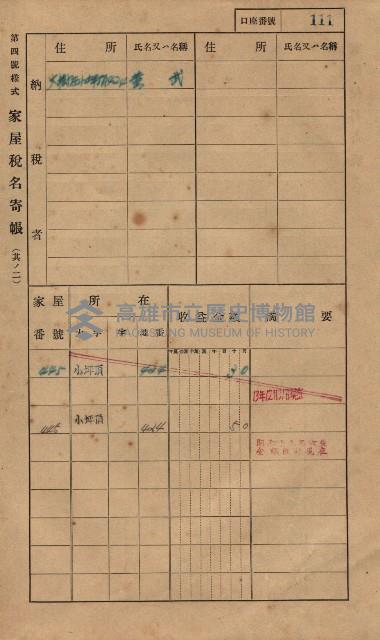 口座番號 111
第四號樣式 家屋稅名寄帳 (其ノ二)
納稅者
住所 氏名又ハ名稱 住所 氏名又ハ名稱
家屋番號 所在 收益金額 摘要
大字 地番
445 小坪頂 424 30
小坪頂
445 424 50
高雄市立歷史博物館
KAOHSIUNG MUSEUM OF HISTORY